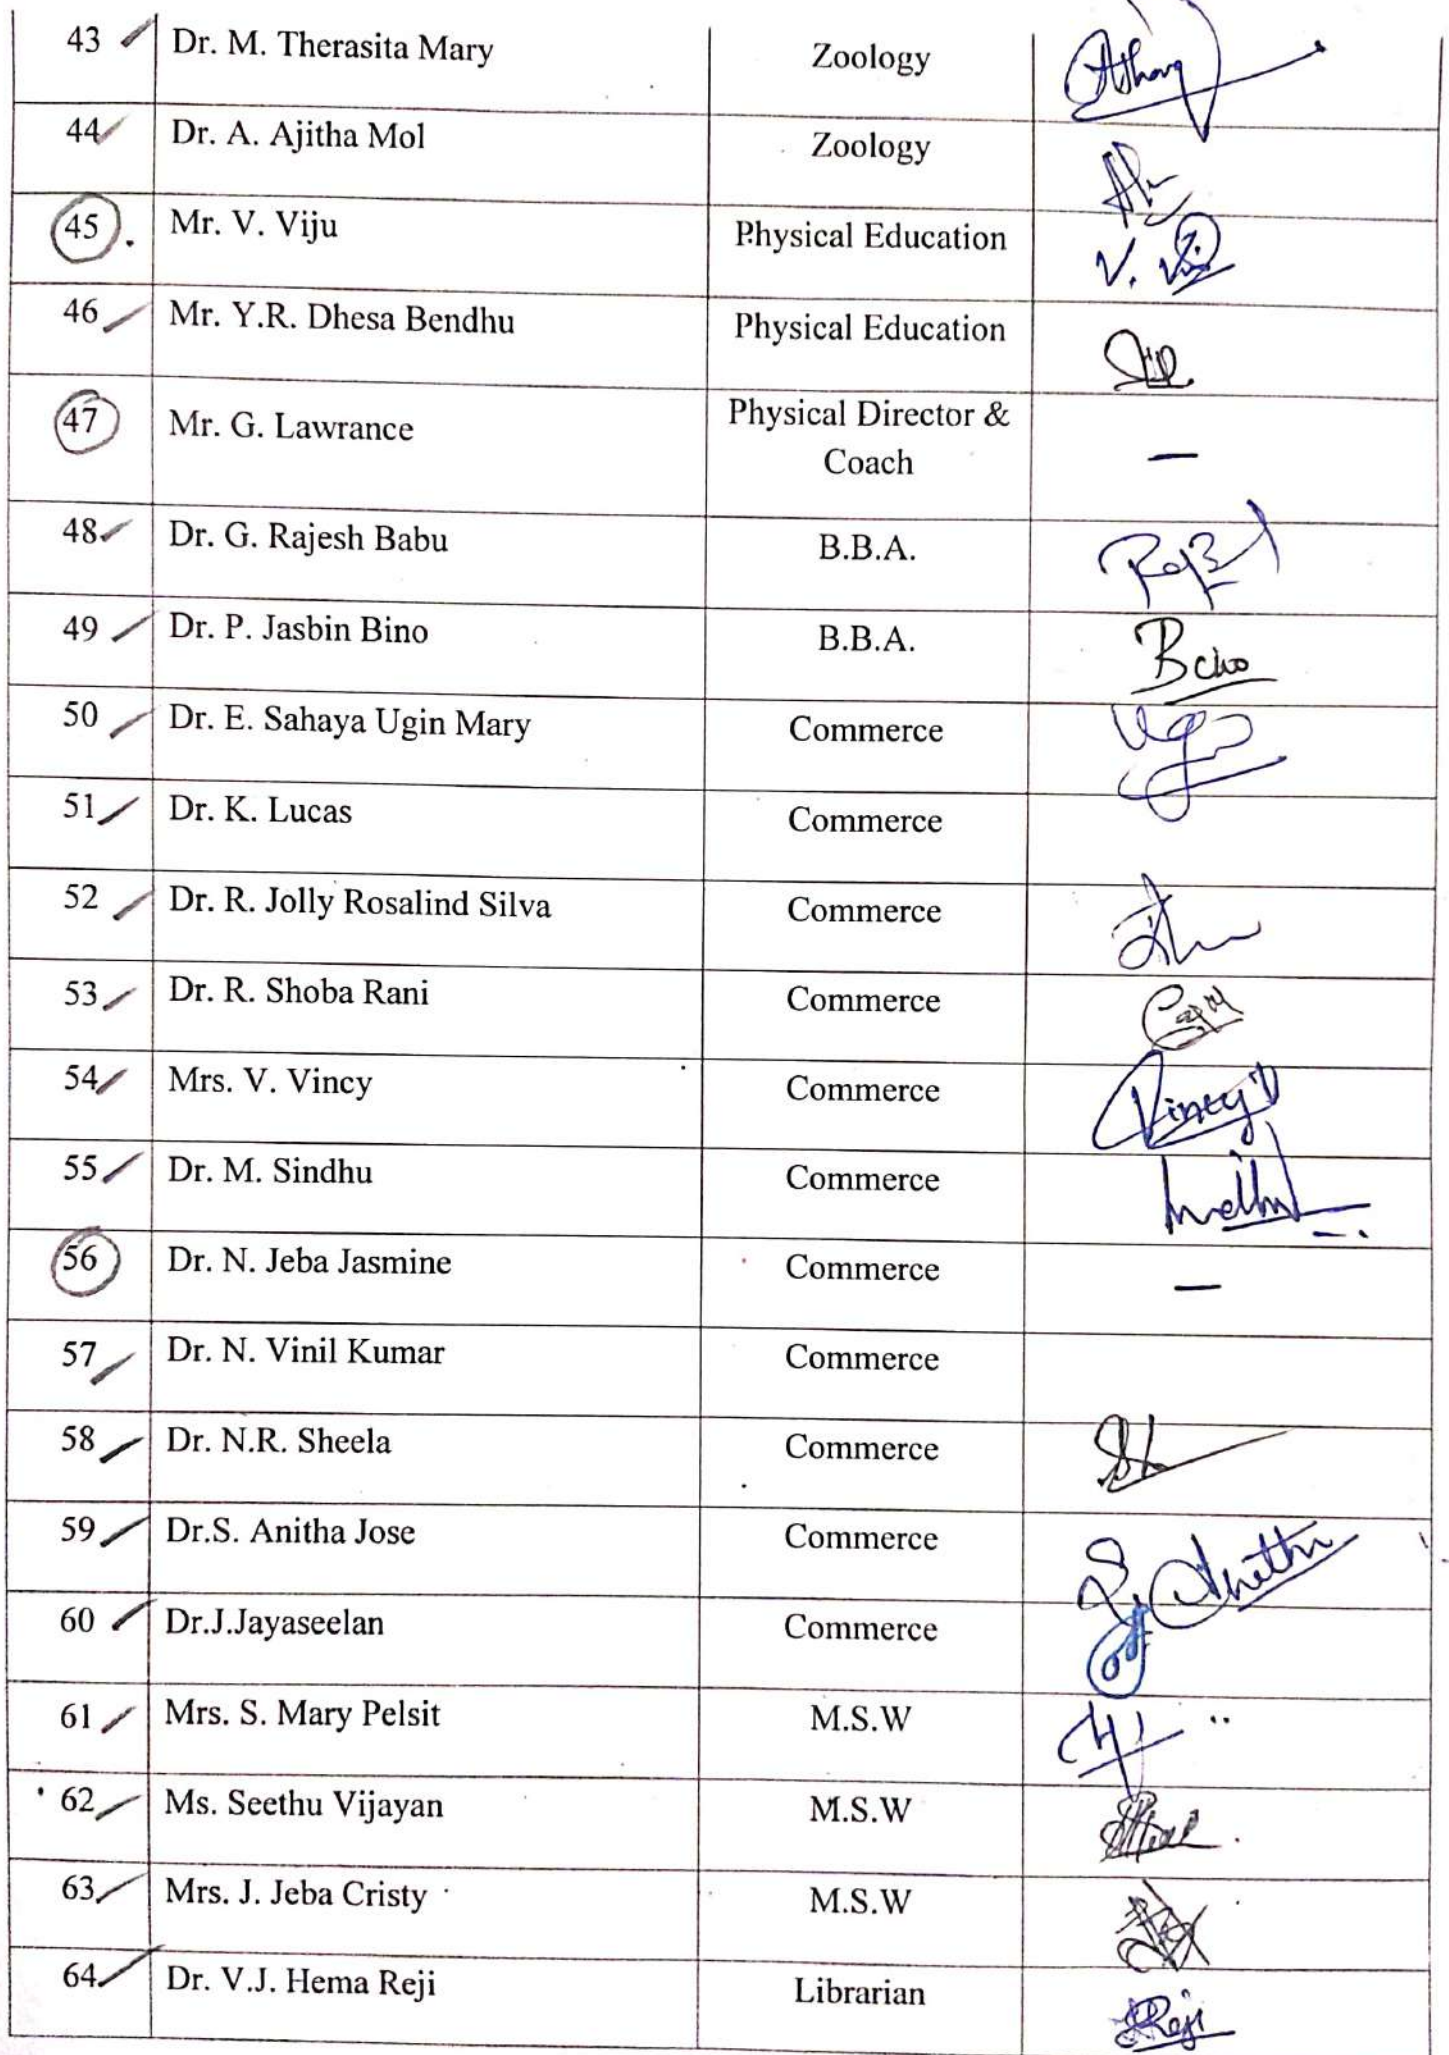 43 Dr. M. Therasita Mary Zoology
44 Dr. A. Ajitha Mol Zoology
45 . Mr. V. Viju Physical Education V. Viju
46 Mr. Y.R. Dhesa Bendhu Physical Education
47 Mr. G. Lawrance Physical Director &
Coach —
48 Dr. G. Rajesh Babu B.B.A.
49 Dr. P. Jasbin Bino B.B.A.
50 Dr. E. Sahaya Ugin Mary Commerce
51 Dr. K. Lucas Commerce
52 Dr. R. Jolly Rosalind Silva Commerce
53 Dr. R. Shoba Rani Commerce
54 Mrs. V. Vincy Commerce Vincy
55 Dr. M. Sindhu Commerce
56 Dr. N. Jeba Jasmine Commerce —
57 Dr. N. Vinil Kumar Commerce
58 Dr. N.R. Sheela Commerce
59 Dr.S. Anitha Jose Commerce
60 Dr.J.Jayaseelan Commerce
61 Mrs. S. Mary Pelsit M.S.W
62 Ms. Seethu Vijayan M.S.W
63 Mrs. J. Jeba Cristy M.S.W
64 Dr. V.J. Hema Reji Librarian Reji